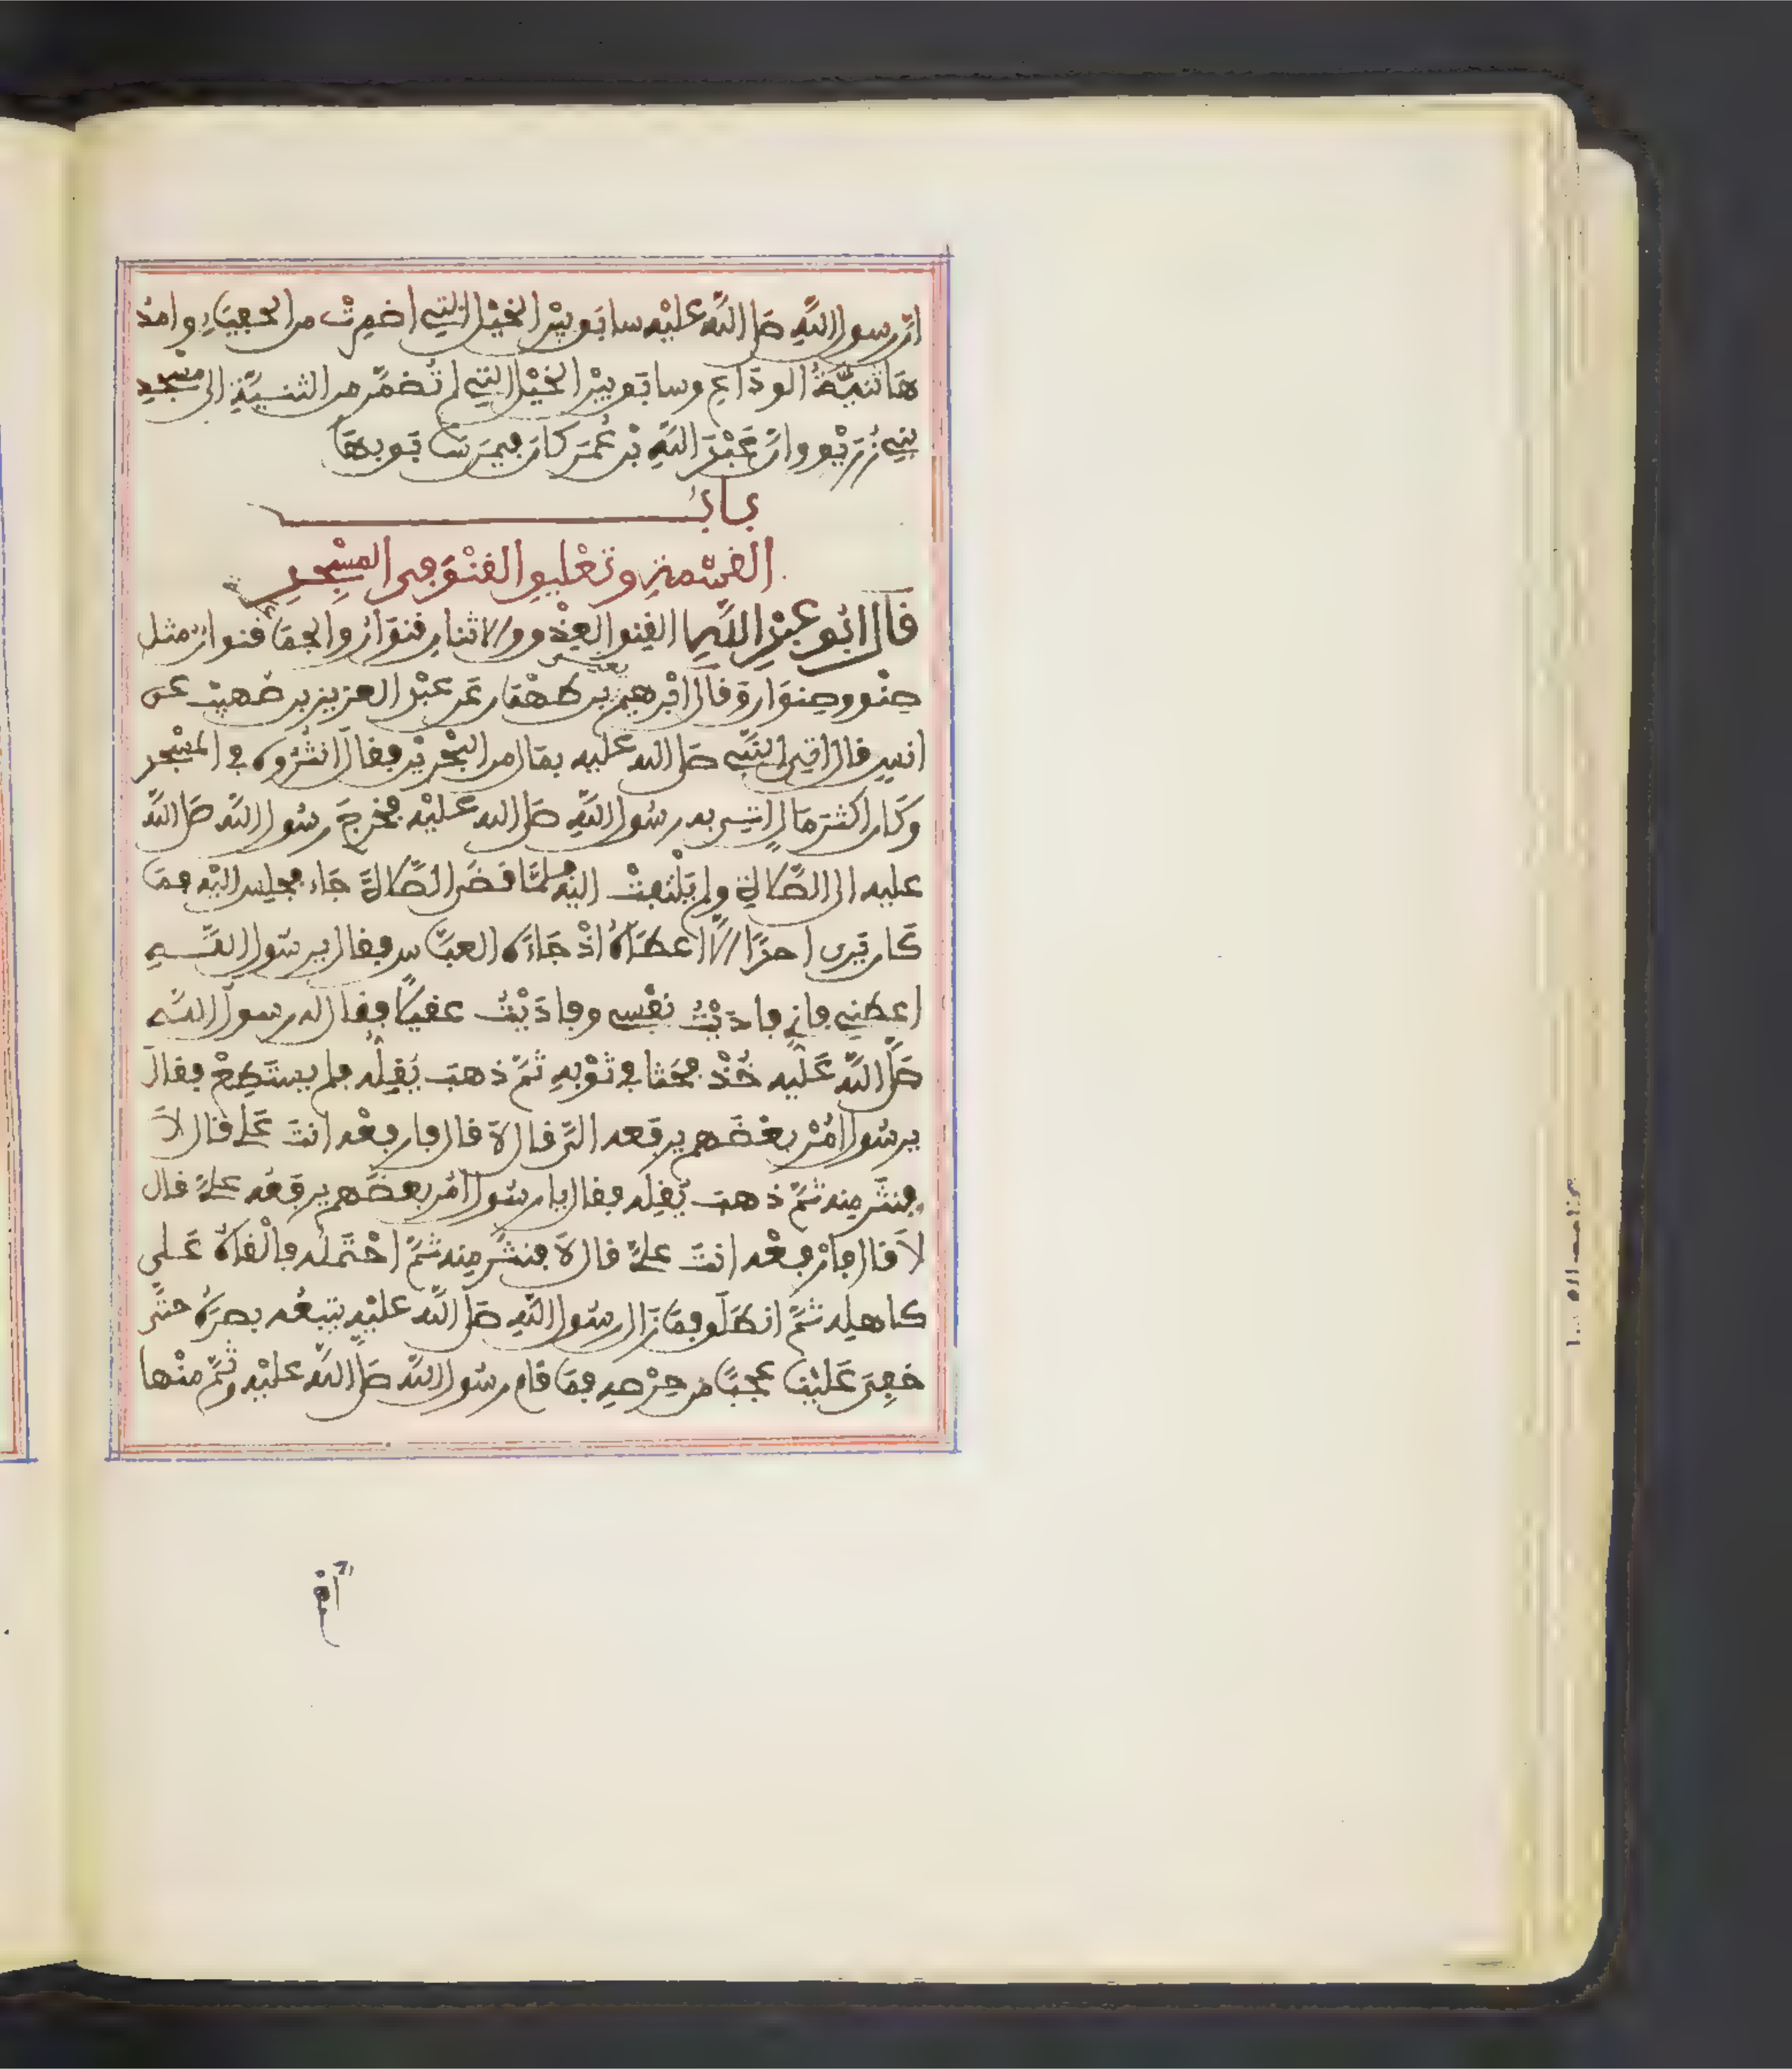 ان رسول الله صلى الله عليه سابق بين الخيل التي اضمرت من الحفياء وامد
ها ثنية الوداع وسابق بين الخيل التي لم تضمر من الثنية الى مسجد
بني زريق وان عبد الله بن عمر كان فيمن سابق بها
باب
القسمة وتعليق القنو في المسجد
قال ابو عبد الله القنو العذق والاثنان قنوان والجماعة قنوان مثل
صنو وصنوان وقال ابرهيم يعني بن طهمان عن عبد العزيز بن صهيب عن
انس قال اتي النبي صلى الله عليه بمال من البحرين فقال انثروه في المسجد
وكان اكثر مال اتي به رسول الله صلى الله عليه فخرج رسول الله صلى الله
عليه الى الصلاة ولم يلتفت اليه فلما قضى الصلاة جاء فجلس اليه فما
كان يرى احدا الا اعطاه اذ جاءه العباس فقال يرسول الله
اعطني فاني فاديت نفسي وفاديت عقيلا فقال له رسول الله
صلى الله عليه خذ فحثا في ثوبه ثم ذهب يقله فلم يستطع فقال
يرسول امر بعضهم يرفعه الي قال لا قال فارفعه انت علي قال لا
فنثر منه ثم ذهب يقله فقال يا رسول امر بعضهم يرفعه علي قال
لا قال فارفعه انت علي قال لا فنثر منه ثم احتمله فالقاه على
كاهله ثم انطلق فما زال رسول الله صلى الله عليه يتبعه بصره حتى
خفي علينا عجبا من حرصه فما قام رسول الله صلى الله عليه وثم منها